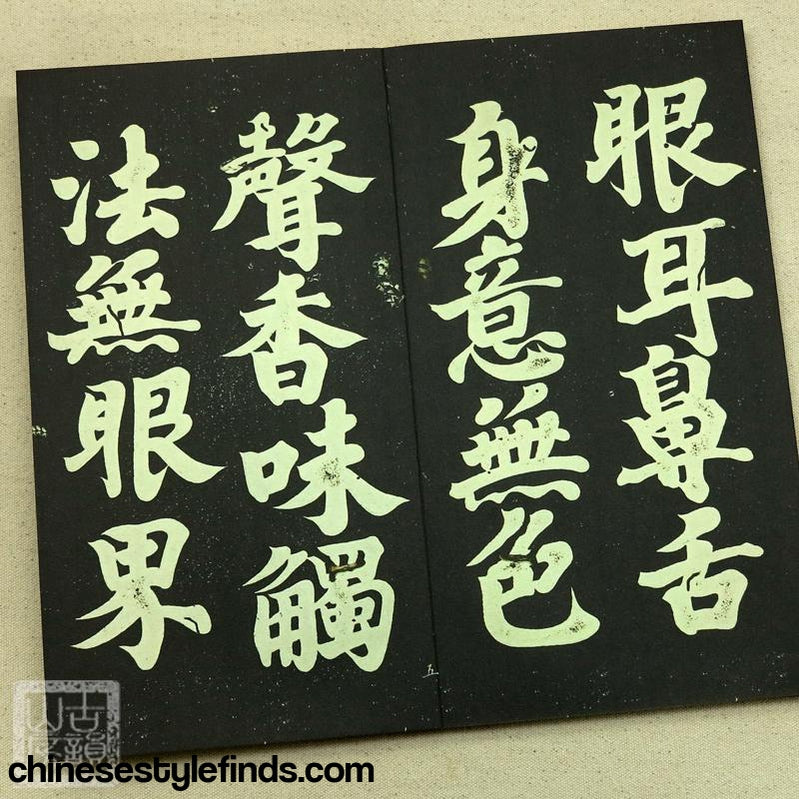 眼耳鼻舌
身意無色
聲香味觸
法無眼界
五
chinesestylefinds.com